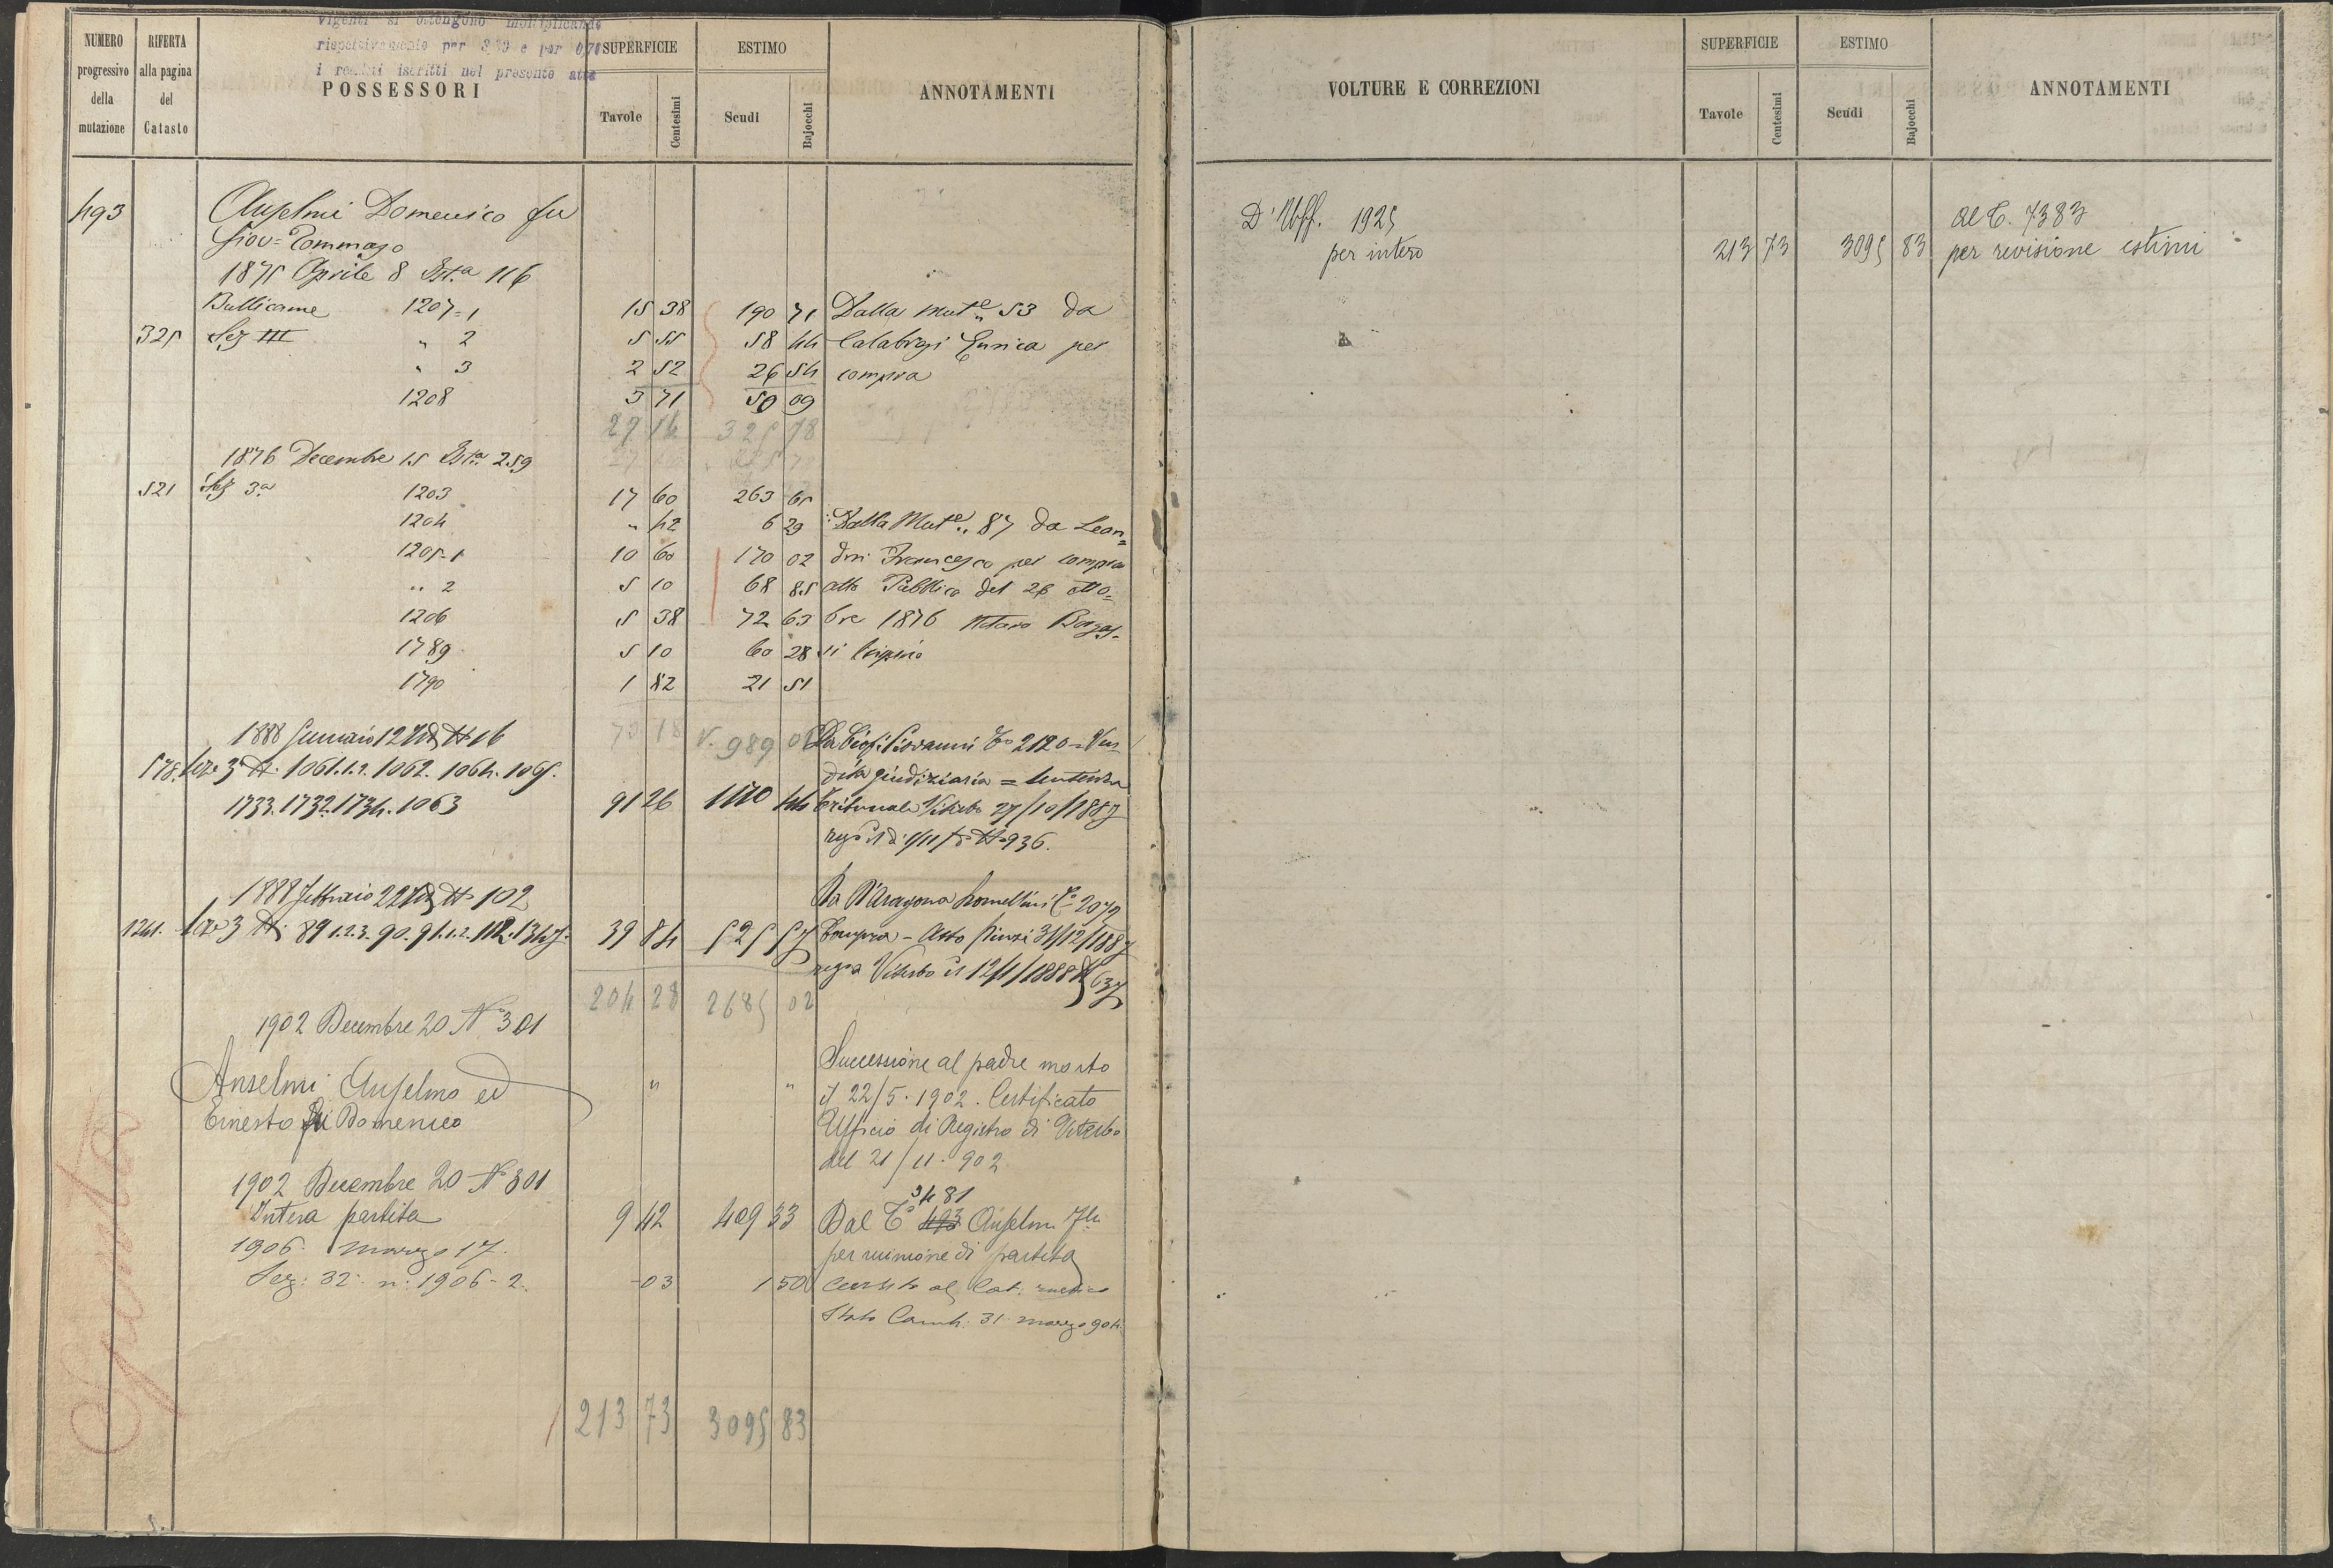 vigenti si ottengono moltiplicando
rispettivamente per e per
i redditi iscritti nel presente atto
NUMERO progressivo della mutazione
RIFERTA alla pagina del Catasto
POSSESSORI
SUPERFICIE
Tavole Centesimi
ESTIMO
Scudi Bajocchi
ANNOTAMENTI
493 Anselmi Domenico fu
Giov= Tommaso
1875 Aprile 8 Ist.a 116
Bullicame 1207=1 15 38 190 71 Dalla Mut.e 53 da
325 Sez III " 2 5 55 58 44 Calabresi Enrica per
" 3 2 52 26 54 compra
1208 3 71 50 09
27 16 325 78
1876 Decembre 15 Ist.a 259
521 Sez 3a 1203 17 60 263 65
1204 " 42 6 29 Dalla Mut.e 87 da Lean=
1205-1 10 60 170 02 dri Francesco per compra
" 2 5 10 68 85 atto Pubblico del 26 otto=
1206 5 38 72 63 bre 1876 Notaro
1789 5 10 60 28
1790 1 82 21 51
73 18 989 01
1888 Gennaio 12 N 16 Giovanni To 2120 = Ven
578 Sez 3a N. 1061.1.2. 1062. 1064. 1065. dita giudiziaria = Sentenza
1733. 1732. 1734. 1063 91 26 1170 44 Tribunale Viterbo 27/10/1887
N. 936.
1888 Febbraio 22 N 102 Da D'Aragona To 2072
1241. Sez 3 N. 89 1.2.3. 90. 91.1.2. 112. 1347. 39 84 525 57 Compra - Atto Pinzi 31/12/1887
Viterbo il 12/1/1888 N 637
204 28 2685 02
1902 Decembre 20 No 301
Anselmi Anselmo ed " " Successione al padre morto
Ernesto fu Domenico il 22/5. 1902. Certificato
Ufficio di Registro di Viterbo
del 21/11. 902.
1902 Decembre 20 No 301
3481
Intera partita 9 42 409 33 Dal To 493 Anselmi
per riunione di partita
1906. marzo 17.
Sez: 32: n: 1906-2. -03 1 50 al Cat.
Stato Camb: 31 marzo 904.
Giunta
213 73 3095 83
VOLTURE E CORREZIONI
SUPERFICIE
Tavole Centesimi
ESTIMO
Scudi Bajocchi
ANNOTAMENTI
D'Uff. 1925 al T. 7383
per intero 213 73 3095 83 per revisione estimi